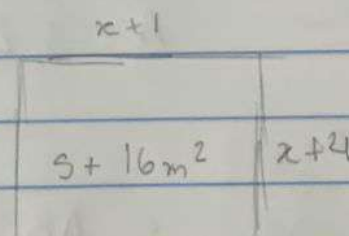 x+1
S+ 16m² x+4